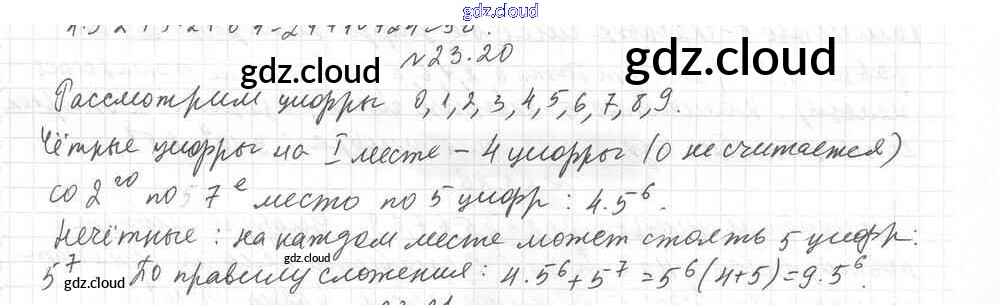 gdz.cloud
№23.20
gdz.cloud gdz.cloud
Рассмотрим цифры 0,1,2,3,4,5,6,7,8,9.
Чётные цифры на I месте – 4 цифры (0 не считается)
со 2го по 7е место по 5 цифр: 4.5⁶.
Нечётные: на каждом месте может стоять 5 цифр:
gdz.cloud
5⁷ По правилу сложения: 4.5⁶+5⁷=5⁶(4+5)=9.5⁶.
gdz.cloud gdz.cloud